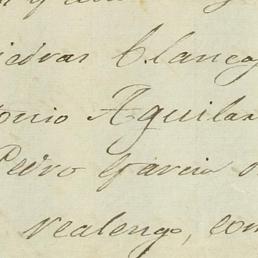 iedras Blancas
tonio Aguilar
Pedro Garcia
realengo, con